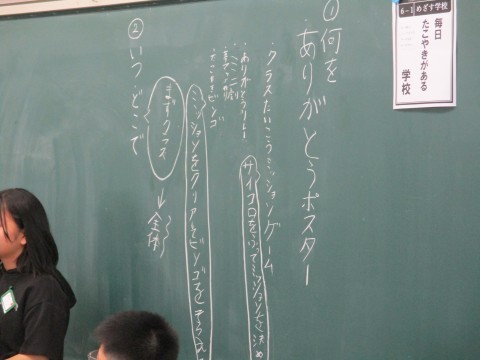 6-1 めざす学校
毎日
たこやきがある
学校
①何を
ありがとうポスター
・クラスたいこうミッションゲーム
サイコロをふってミッションを決め
・ありがとうリレー
ミッションをクリアしてビンゴを
②いつ・どこで
まずクラス
→全体